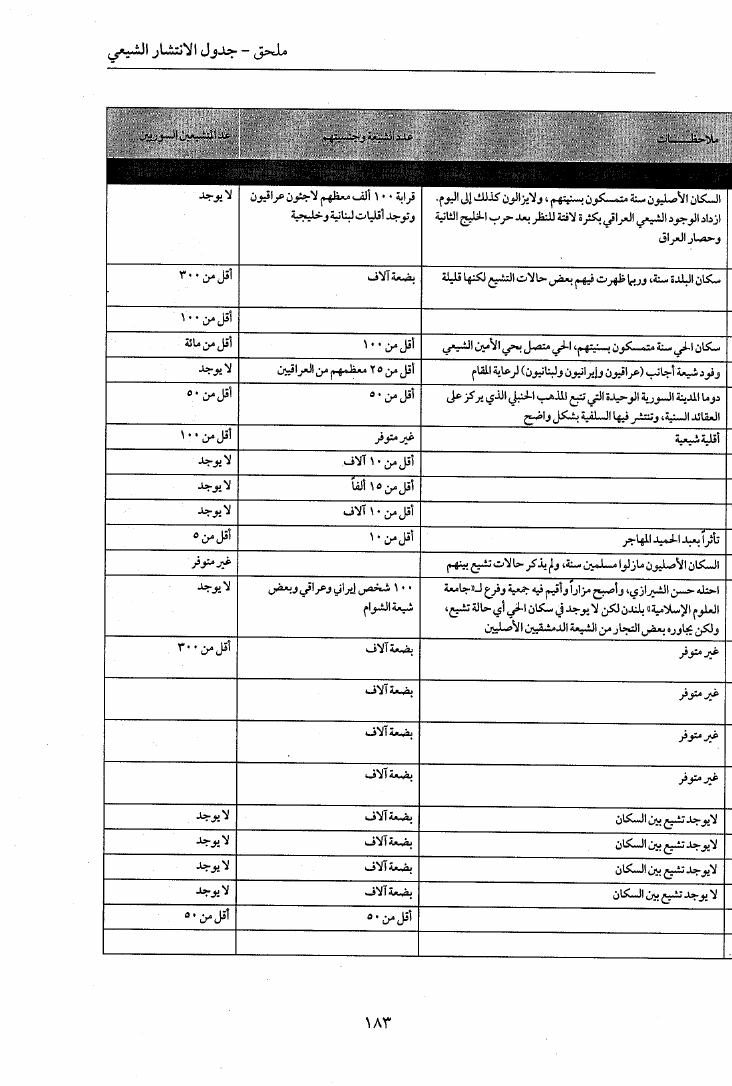 ملحق - جدول الانتشار الشيعي
ملاحظـــات
عدد الشيعة وجنسيتهم
عدد المتشيعين السوريين
السكان الأصليون سنة متمسكون بسنيتهم، ولايزالون كذلك إلى اليوم.
ازداد الوجود الشيعي العراقي بكثرة لافتة للنظر بعد حرب الخليج الثانية
وحصار العراق
قرابة ١٠٠ ألف معظهم لاجئون عراقيون
وتوجد أقليات لبنانية وخليجية
لا يوجد
سكان البلدة سنة، وربما ظهرت فيهم بعض حالات التشيع لكنها قليلة
بضعة آلاف
أقل من ٣٠٠
أقل من ١٠٠
سكان الحي سنة متمسكون بسنيتهم، الحي متصل بحي الأمين الشيعي
أقل من ١٠٠
أقل من مائة
وفود شيعة أجانب (عراقيون وإيرانيون ولبنانيون) لرعاية المقام
أقل من ٢٥ معظمهم من العراقيين
لا يوجد
دوما المدينة السورية الوحيدة التي تتبع المذهب الحنبلي الذي يركز على
العقائد السنية، وتنتشر فيها السلفية بشكل واضح
أقل من ٥٠
أقل من ٥٠
أقلية شيعية
غير متوفر
أقل من ١٠٠
أقل من ١٠ آلاف
لا يوجد
أقل من ١٥ ألفاً
لا يوجد
أقل من ١٠ آلاف
لا يوجد
تأثراً بعبد الحميد المهاجر
أقل من ١٠
أقل من ٥
السكان الأصليون مازلوا مسلمين سنة، ولم يذكر حالات تشيع بينهم
غير متوفر
احتله حسن الشيرازي، وأصبح مزاراً وأقيم فيه جمعية وفرع لـ«جامعة
العلوم الإسلامية» بلندن لكن لا يوجد في سكان الحي أي حالة تشيع،
ولكن يجاوره بعض التجار من الشيعة الدمشقيين الأصليين
١٠٠ شخص إيراني وعراقي وبعض
شيعة الشوام
لا يوجد
غير متوفر
بضعة آلاف
أقل من ٣٠٠
غير متوفر
بضعة آلاف
غير متوفر
بضعة آلاف
غير متوفر
بضعة آلاف
لايوجد تشيع بين السكان
بضعة آلاف
لا يوجد
لايوجد تشيع بين السكان
بضعة آلاف
لا يوجد
لايوجد تشيع بين السكان
بضعة آلاف
لا يوجد
لا يوجد تشيع بين السكان
بضعة آلاف
لا يوجد
أقل من ٥٠
أقل من ٥٠
١٨٣